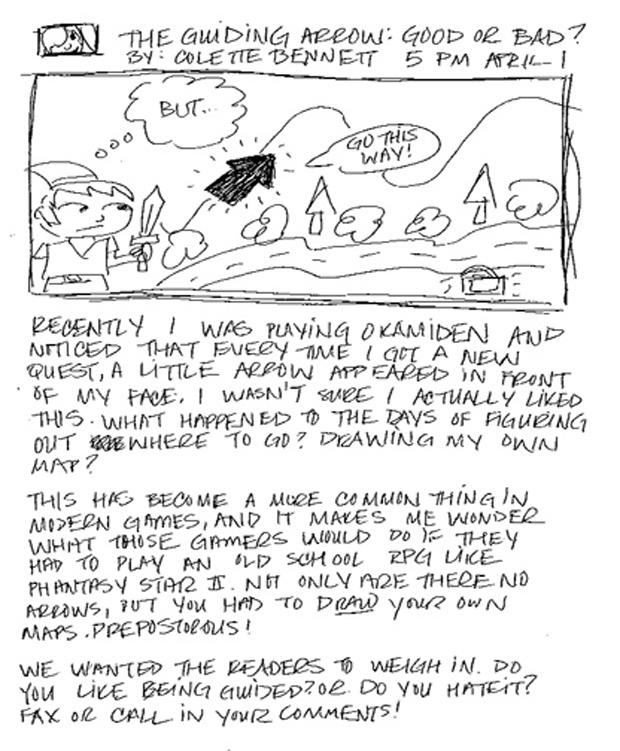 THE GUIDING ARROW: GOOD OR BAD?
BY: COLETTE BENNETT 5 PM APRIL 1
BUT...
GO THIS
WAY!
RECENTLY I WAS PLAYING OKAMIDEN AND
NOTICED THAT EVERY TIME I GOT A NEW
QUEST, A LITTLE ARROW APPEARED IN FRONT
OF MY FACE. I WASN'T SURE I ACTUALLY LIKED
THIS. WHAT HAPPENED TO THE DAYS OF FIGURING
OUT WHERE TO GO? DRAWING MY OWN
MAP?
THIS HAS BECOME A MORE COMMON THING IN
MODERN GAMES, AND IT MAKES ME WONDER
WHAT THOSE GAMERS WOULD DO IF THEY
HAD TO PLAY AN OLD SCHOOL RPG LIKE
PHANTASY STAR II. NOT ONLY ARE THERE NO
ARROWS, BUT YOU HAD TO DRAW YOUR OWN
MAPS. PREPOSTOROUS!
WE WANTED THE READERS TO WEIGH IN. DO
YOU LIKE BEING GUIDED? OR DO YOU HATE IT?
FAX OR CALL IN YOUR COMMENTS!